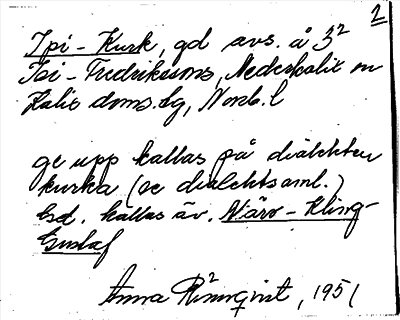 2
Ipi-Kurk, gd avs. å 3²
Isi-Fredrikssons, Nederkalix sn
Kalix doms.sg, Norrb.l
ge upp kallas på dialekten
kurka (se dialektsaml.)
Gd. kallas äv. Närv-Kling-
Gustaf
Anna Rönnqvist, 1951